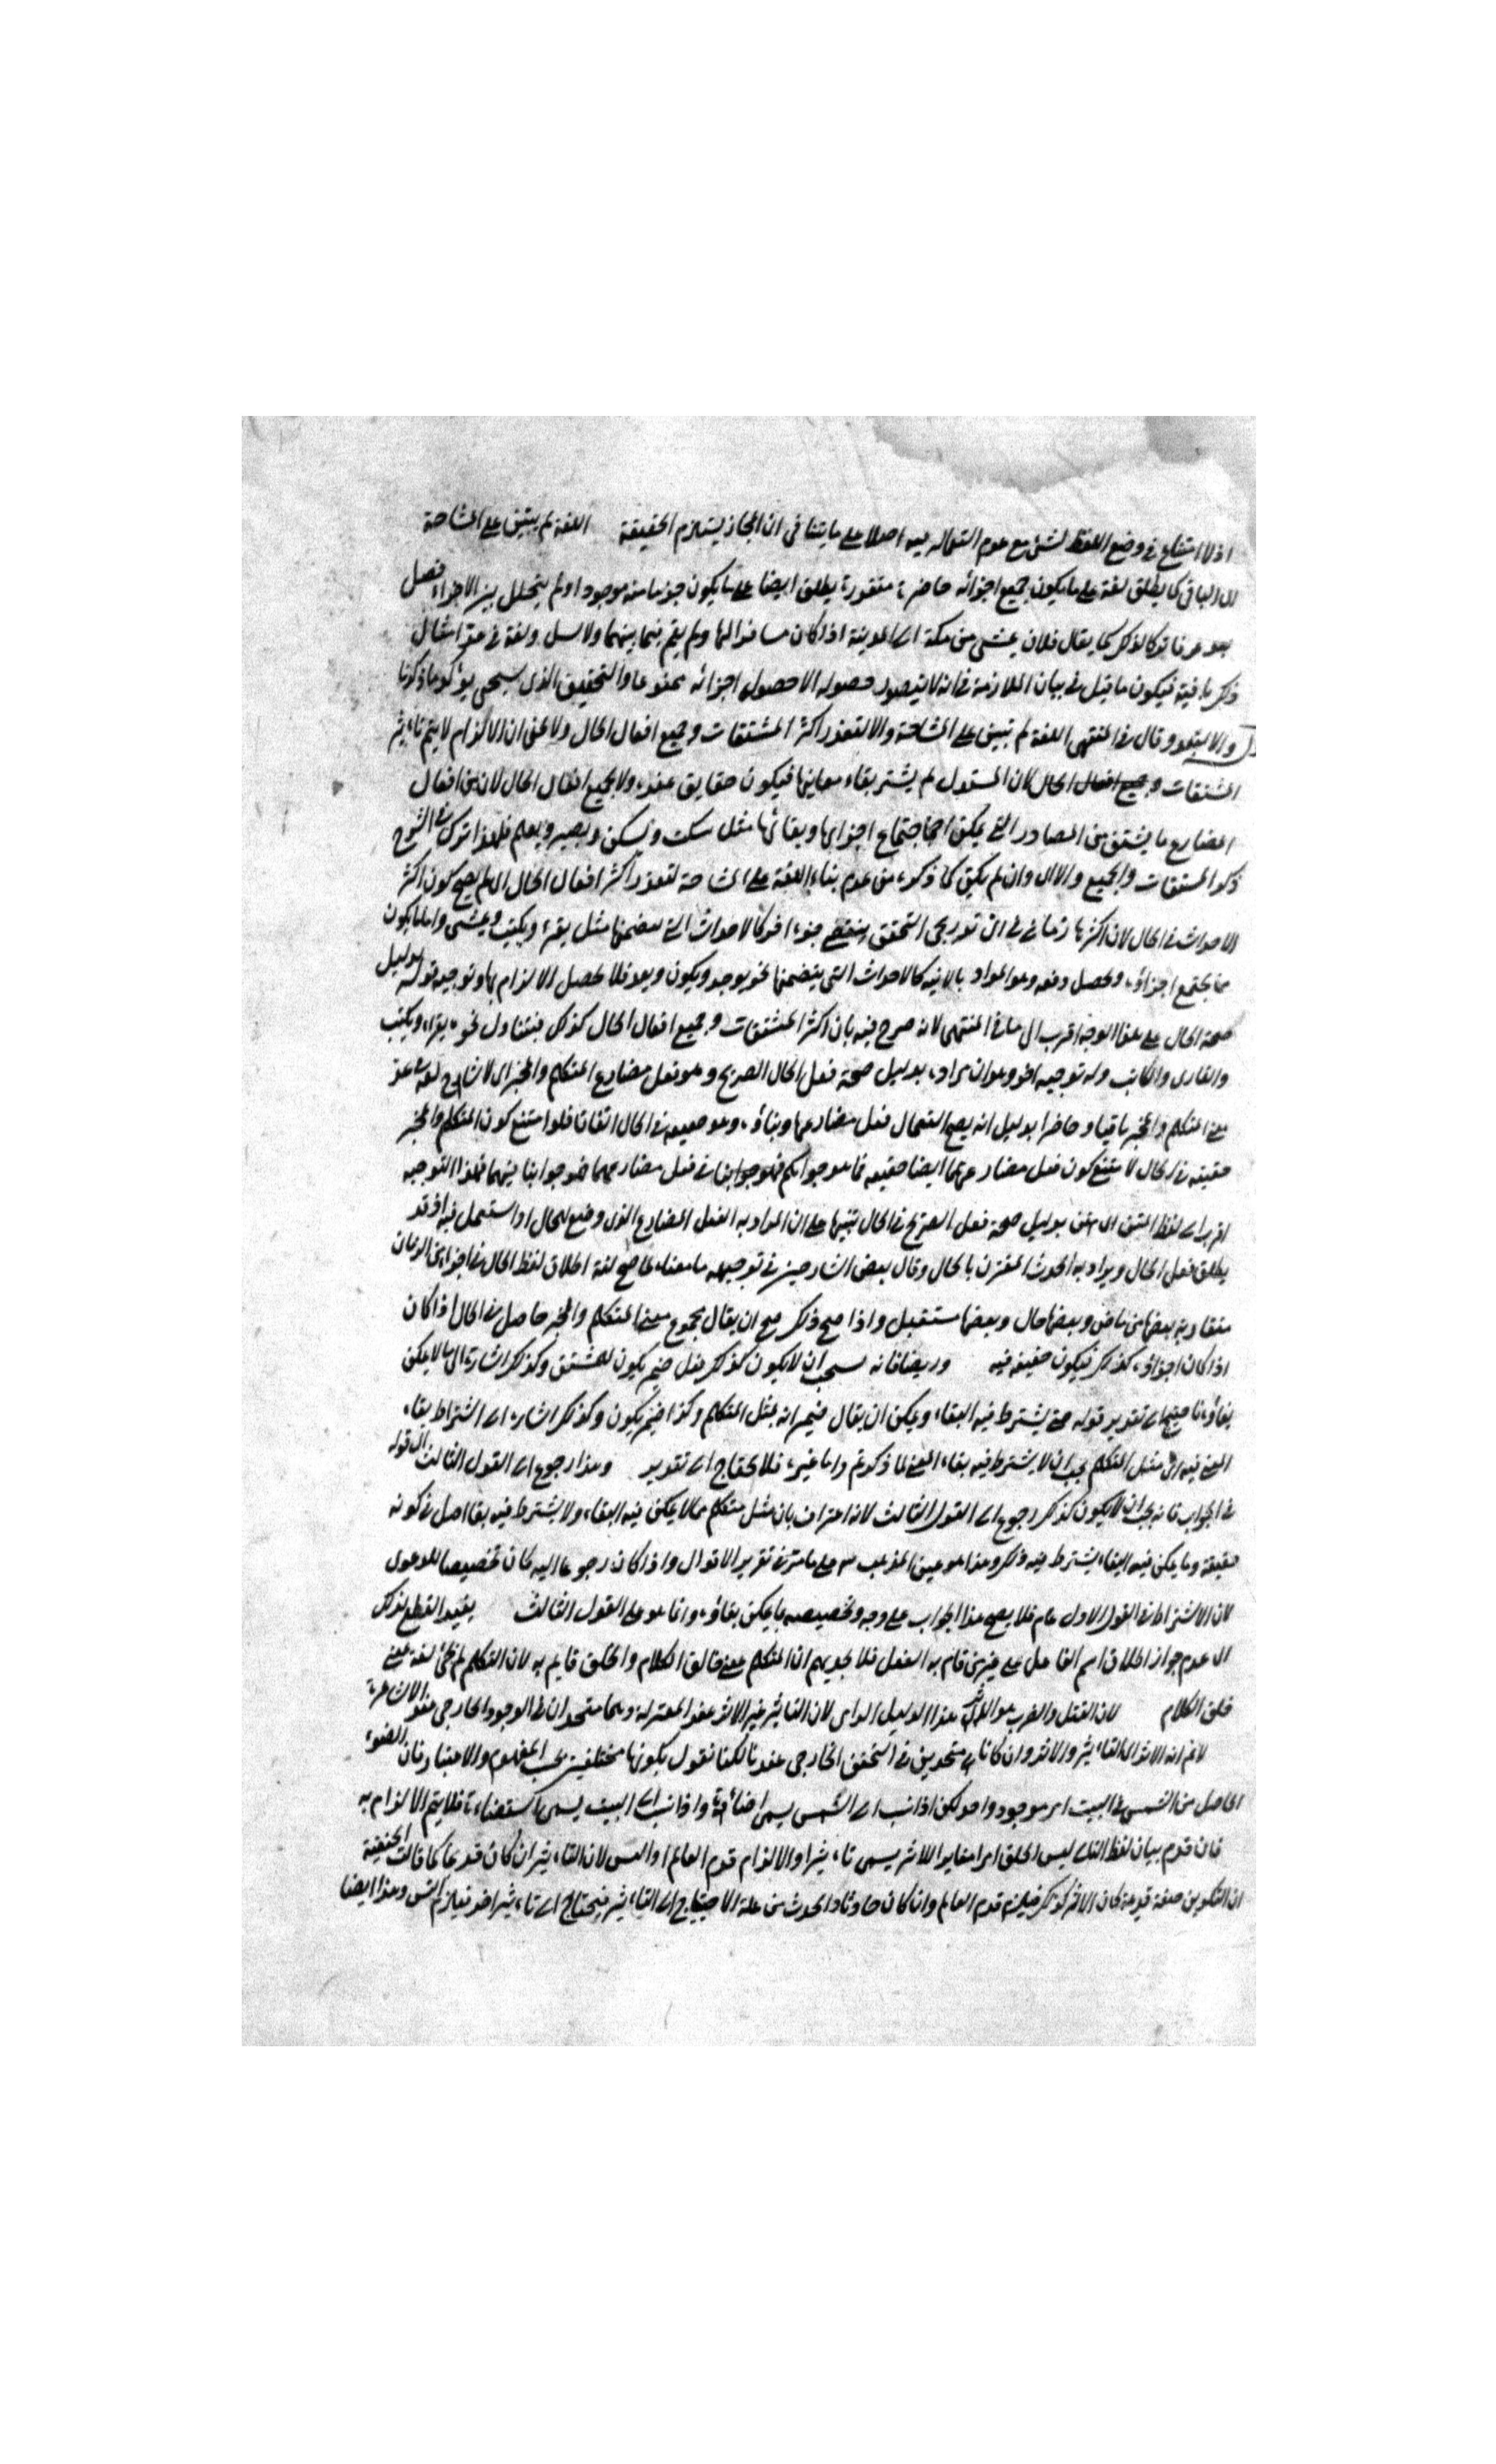 اذ لا امتناع في وضع اللفظ لشئ مع عدم استعماله فيه اصلا على ما يتنافى ان المجاز يستلزم الحقيقة اللغة لم يبتن على المشاحة
الباقى كما يطلق لغة على ما يكون جميع اجزائه حاضرة متقررة يطلق ايضا على ما يكون جزء ما منه موجودا ولم يتخلل بين الاجزاء فصل
يعد عرفا تركا لذلك كما يقال فلان يمشى من مكة الى المدينة اذا كان مسافرا اليها ولم يقم فيما بينهما
ذكر باقية فيكون ما قيل في بيان الملازمة من انه لا يتصور حصوله الا حصول اجزائه ممنوعا والتحقيق الذى سيجئ يؤكد ما ذكرنا
والا لتعذر وقال في المنتهى اللغة لم تبتن على المشاحة والا لتعذر اكثر المشتقات وجميع افعال الحال ولا يخفى ان الالزام لا يتم باكثر
المشتقات وجميع افعال الحال لان المستدل لم يشترط بقاء معانيها فيكون حقايق عنده ولا بجميع افعال الحال لان من افعال
المضارع ما يشتق من المصادر التى يمكن اجتماع اجزائها وبقائها مثل سكت ويسكن ويبصر ويعلم فلهذا ترك في الشرح
ذكر المشتقات والجميع والا اى وان لم يكن كما ذكره من عدم بناء اللغة على المشاحة لتعذر اكثر افعال الحال اى لم يصح كون اكثر
الاحداث في الحال لان اكثرها زمانى اى تدريجى التحقق كالاحداث التى يتضمنها مثل يقرء ويكتب ويمشى واما ما يكون
مما يجتمع اجزاؤه ويحصل دفعه وهو المراد بالانية كالاحداث التى يتضمنها نحو يوجد ويكون ويعد فلا يحصل الالزام بها وتوجيه قوله بدليل
صحة الحال على هذا الوجه اقرب الى ما في المنتهى لانه صرح فيه بان اكثر المشتقات وجميع افعال الحال كذلك فيتناول نحو يقراء ويكتب
والقارى والكاتب وله توجيه اخر وهو ان يراد بدليل صحة فعل الحال الصريح وهو فعل مضارع المتكلم والمخبر
معنى المتكلم والمخبر باقيا وحاضرا بدليل انه يصح استعمال فعل مضارعها وبناؤه وهو حقيقة في الحال اتفاقا فلو امتنع كون المتكلم والمخبر
حقيقة في الحال لامتنع كون فعل مضارعهما ايضا حقيقة فما هو جوابكم فهو جوابنا في فعل مضارعهما فهو جوابنا فيهما فلهذا التوجيه
اقرب الى لفظ المتن بدليل صحة فعل الصريح في الحال تنبيها على ان المراد به الفعل المضارع الذى وضع للحال او استعمل فيه اذ قد
يطلق فعل الحال ويراد به الحدث المقترن بالحال وقال بعض الشارحين في توجيهه ما معناه لما صح لغة اطلاق لفظ الحال في اجزاء من الزمان
متقاربة بعضها من ماض وبعضها حال وبعضها مستقبل واذا صح ذلك صح ان يقال مجموع معنى المتكلم والمخبر حاصل في الحال اذا كان
اذا كان اجزاؤه كذلك فيكون حقيقة فيه وايضا فانه يجب ان لا يكون كذلك فعل ضمير يكون للمشتق وكذلك اشارة الى ما لا يمكن
بقاؤه فاحتيج الى تقدير قوله حتى يشترط فيه البقاء ويمكن ان يقال ضمير انه لمثل المتكلم وكذا ضمير يكون وكذلك اشارة الى اشتراط بقاء
المعنى فيه اى مثل المتكلم يجب ان لا يشترط فيه بقاء المعنى لما ذكرتم واما غيره فلا يحتاج الى تقدير وهذا رجوع الى القول الثالث اى قوله
في الجواب فانه يجب ان لا يكون كذلك رجوع الى القول الثالث لانه اعتراف بان مثل متكلم مما لا يمكن فيه البقاء ولا يشترط فيه بقاء اصل في كونه
حقيقة وما يمكن فيه البقاء يشترط فيه ذلك وهذا هو عين المذهب على ما مر في تقرير الاقوال واذا كان رجوعا اليه كان تخصيصا للدعوى
لان الاشتراط في القول الاول عام فلا يصح هذا الجواب على وجه وتخصيصه بما يمكن بقاؤه وانما هو على القول الثالث يفيد القطع بذلك
اى عدم جواز اطلاق اسم الفاعل على غير من قام به الفعل فلا يجديهم ان المتكلم بمعنى خالق الكلام والخلق قايم به لان التكلم لم يجئ لغة بمعنى
خلق الكلام لان القتل والضرب هو الاثر هذا الدليل لان التاثير غير الاثر عند المعتزلة وهما متحدان في الوجود الخارجى عند الاشاعرة
لا نم انه الاثر التاثير والاثر وان كانا متحدين في التحقق الخارجى عندنا لكنا نقول بكونهما مختلفين بحسب المفهوم والاعتبار فان الضوء
الحاصل من الشمس في البيت امر موجود واحد لكن اذا نسب الى الشمس يسمى اضاءة واذا نسب الى البيت يسمى استضاءة فلا يتم الالزام به
فان قدم بيان لفظ التاثير ليس الخلق امرا مغايرا للاثر يسمى تاثيرا والا لزم قدم العالم او التس لان التاثير ان كان قديما كما قالت الحنفية
ان التكوين صفة قديمة كان الاثر كذلك فيلزم قدم العالم وان كان حادثا والحدث من علة الاحتياج الى التاثير فيحتاج الى تاثير اخر فيلزم التس وهذا ايضا